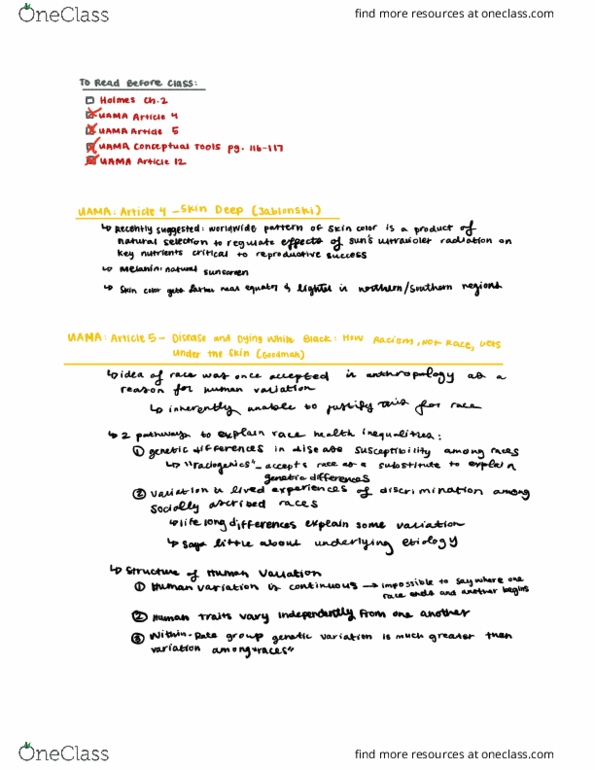 OneClass
find more resources at oneclass.com
To Read Before Class:
Holmes Ch.2
UAMA Article 4
UAMA Article 5
UAMA Conceptual Tools pg. 116-117
UAMA Article 12
UAMA: Article 4 - Skin Deep (Jablonski)
↳ Recently suggested: worldwide pattern of skin color is a product of
natural selection to regulate effects of sun's ultraviolet radiation on
key nutrients critical to reproductive success
↳ Melanin: natural sunscreen
↳ Skin color gets darker near equator & lighter in northern/southern regions
UAMA: Article 5 - Disease and Dying While Black: How Racism, Not Race, Gets
Under the Skin (Goodman)
↳ idea of race was once accepted in anthropology as a
reason for human variation
↳ inherently unable to justify this for race
↳ 2 pathways to explain race health inequalities:
① genetic differences in disease susceptibility among races
↳ "raciogenics" - accepts race as a substitute to explain
genetic differences
② variation in lived experiences of discrimination among
socially ascribed races
↳ life long differences explain some variation
↳ says little about underlying etiology
↳ Structure of Human Variation
① Human variation is continuous → impossible to say where one
race ends and another begins
② Human traits vary independently from one another
③ Within-Race group genetic variation is much greater than
variation among "races"
OneClass
find more resources at oneclass.com